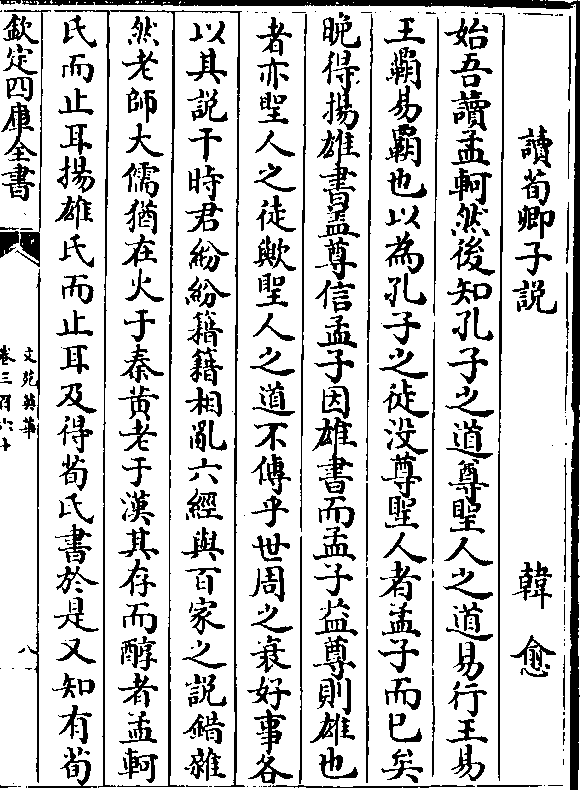 讀荀卿子説 韓愈
始吾讀孟軻然後知孔子之道尊聖人之道易行王易
王霸易霸也以為孔子之徒没尊聖人者孟子而已矣
晚得揚雄書益尊信孟子因雄書而孟子益尊則雄也
者亦聖人之徒歟聖人之道不傳乎世周之衰好事各
以其説干時君紛紛籍籍相亂六經與百家之説錯雜
然老師大儒猶在火于秦黄老于漢其存而醇者孟軻
氏而止耳揚雄氏而止耳及得荀氏書於是又知有荀
欽定四庫全書
文苑英華
卷三百六十
八